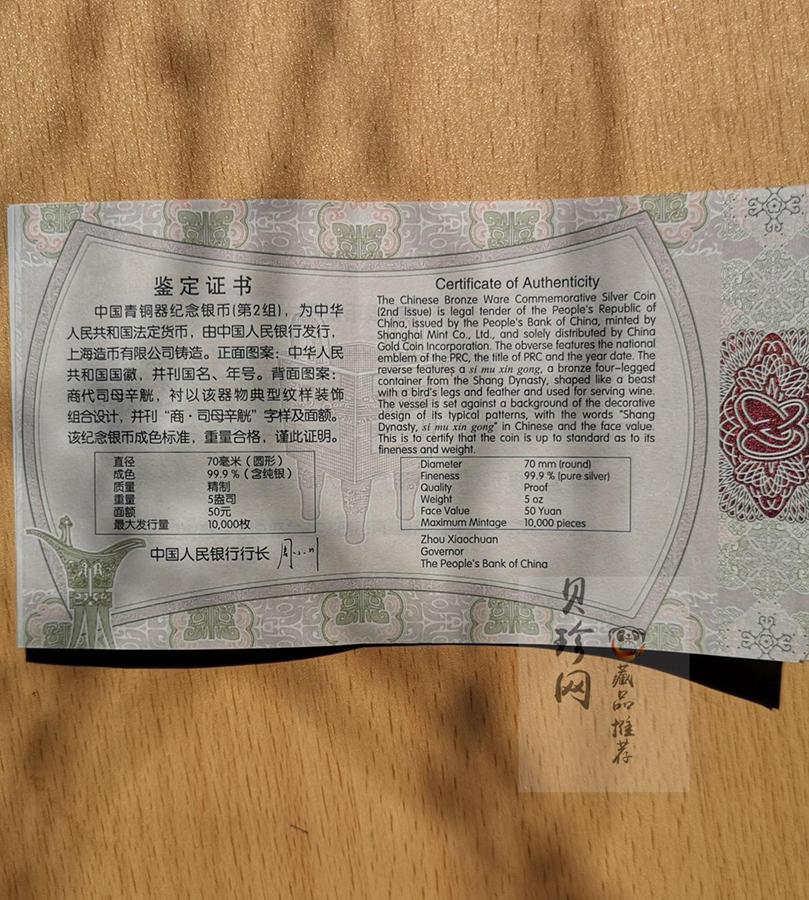 鉴定证书
中国青铜器纪念银币(第2组)，为中华
人民共和国法定货币，由中国人民银行发行，
上海造币有限公司铸造。正面图案：中华人民
共和国国徽，并刊国名、年号。背面图案：
商代司母辛觥，衬以该器物典型纹样装饰
组合设计，并刊“商·司母辛觥”字样及面额。
该纪念银币成色标准，重量合格，谨此证明。
直径 70毫米（圆形）
成色 99.9％（含纯银）
质量 精制
重量 5盎司
面额 50元
最大发行量 10,000枚
中国人民银行行长
Certificate of Authenticity
The Chinese Bronze Ware Commemorative Silver Coin
(2nd Issue) is legal tender of the People's Republic of
China, issued by the People's Bank of China, minted by
Shanghai Mint Co., Ltd., and solely distributed by China
Gold Coin Incorporation. The obverse features the national
emblem of the PRC, the title of PRC and the year date. The
reverse features a si mu xin gong, a bronze four-legged
container from the Shang Dynasty, shaped like a beast
with a bird's legs and feather and used for serving wine.
The vessel is set against a background of the decorative
design of its typical patterns, with the words "Shang
Dynasty, si mu xin gong" in Chinese and the face value.
This is to certify that the coin is up to standard as to its
fineness and weight.
Diameter 70 mm (round)
Fineness 99.9 % (pure silver)
Quality Proof
Weight 5 oz
Face Value 50 Yuan
Maximum Mintage 10,000 pieces
Zhou Xiaochuan
Governor
The People's Bank of China
贝珍网
藏品推荐